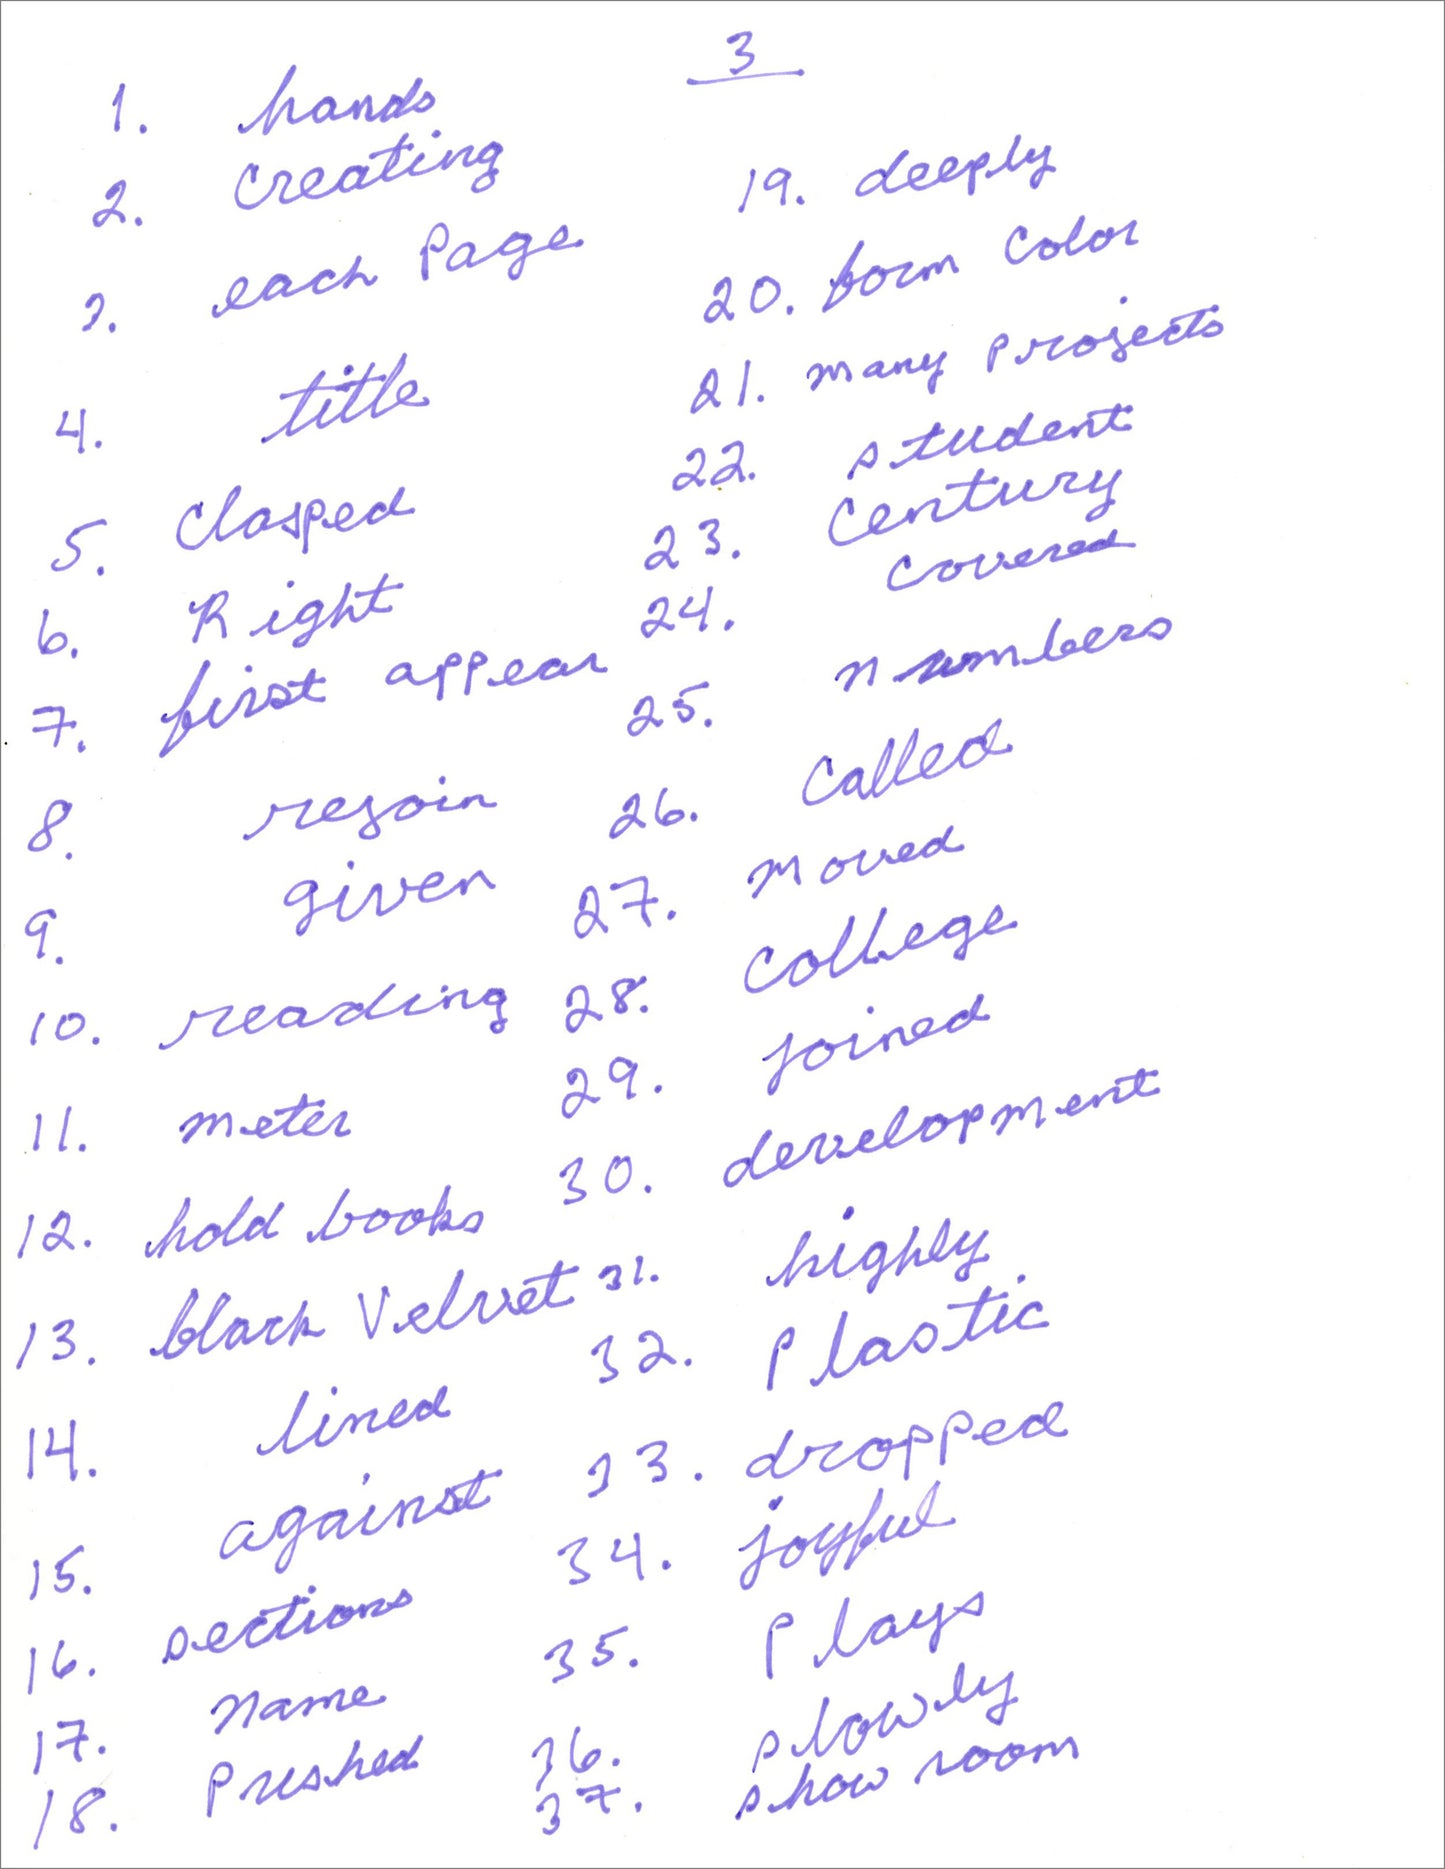 3
1. hands
2. Creating
3. each Page
4. title
5. Clasped
6. Right
7. first appear
8. rejoin
9. given
10. reading
11. meter
12. hold books
13. black Velvet
14. lined
15. against
16. sections
17. Name
18. Pushed
19. deeply
20. born Color
21. many Projects
22. student
23. Century
24. Covered
25. numbers
26. Called
27. moved
28. College
29. joined
30. development
31. highly
32. Plastic
33. dropped
34. joyful
35. Plays
36. slowly
37. show room